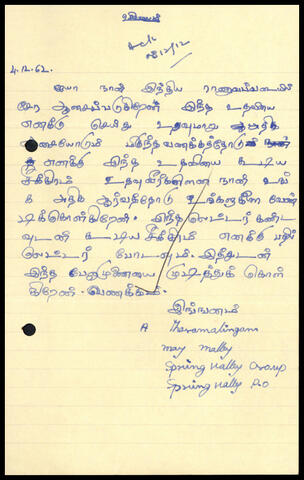 உ
Ack
08/12/12
4.12.62.
ஐயா நான் இந்திய ராணுவப்படையில்
சேர ஆசைப்படுகிறேன் இந்த உதவியை
எனக்கு செய்து உதவுமாறு
ஆசையோடும் வணக்கத்தோடு நான்
எனக்கு இந்த உதவியை கூடிய
சீக்கிரம் உதவுவீர்களென நான் உங்
க அதிக ஆர்வத்தோடு உங்களுளை வேண்
டிக்கொள்கிறேன். இந்த லெட்டர் கண்ட
வுடன் கூடிய சீக்கிரம் எனக்கு பதில்
லெட்டர் போடவும். இத்துடன்
இந்த பேனாமுனையை முடித்துக் கொள்
கிறேன். வணக்கம்.
இங்ஙனம்
A Tharamalingam
may malley
Spring Valley Group
Spring Valley P.O